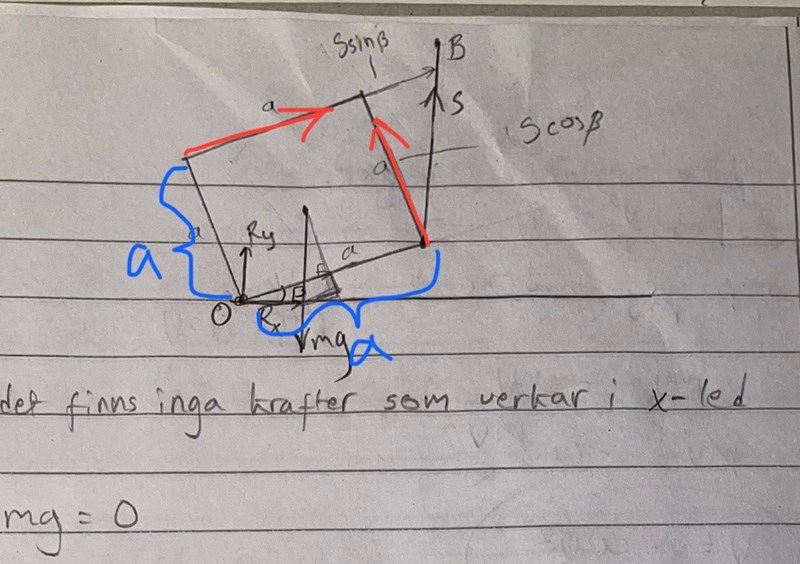 Ssinβ
B
a
S
Scosβ
a
a
a
Ry
a
O
Rx
B
mg
a
det finns inga krafter som verkar i x-led
mg = 0